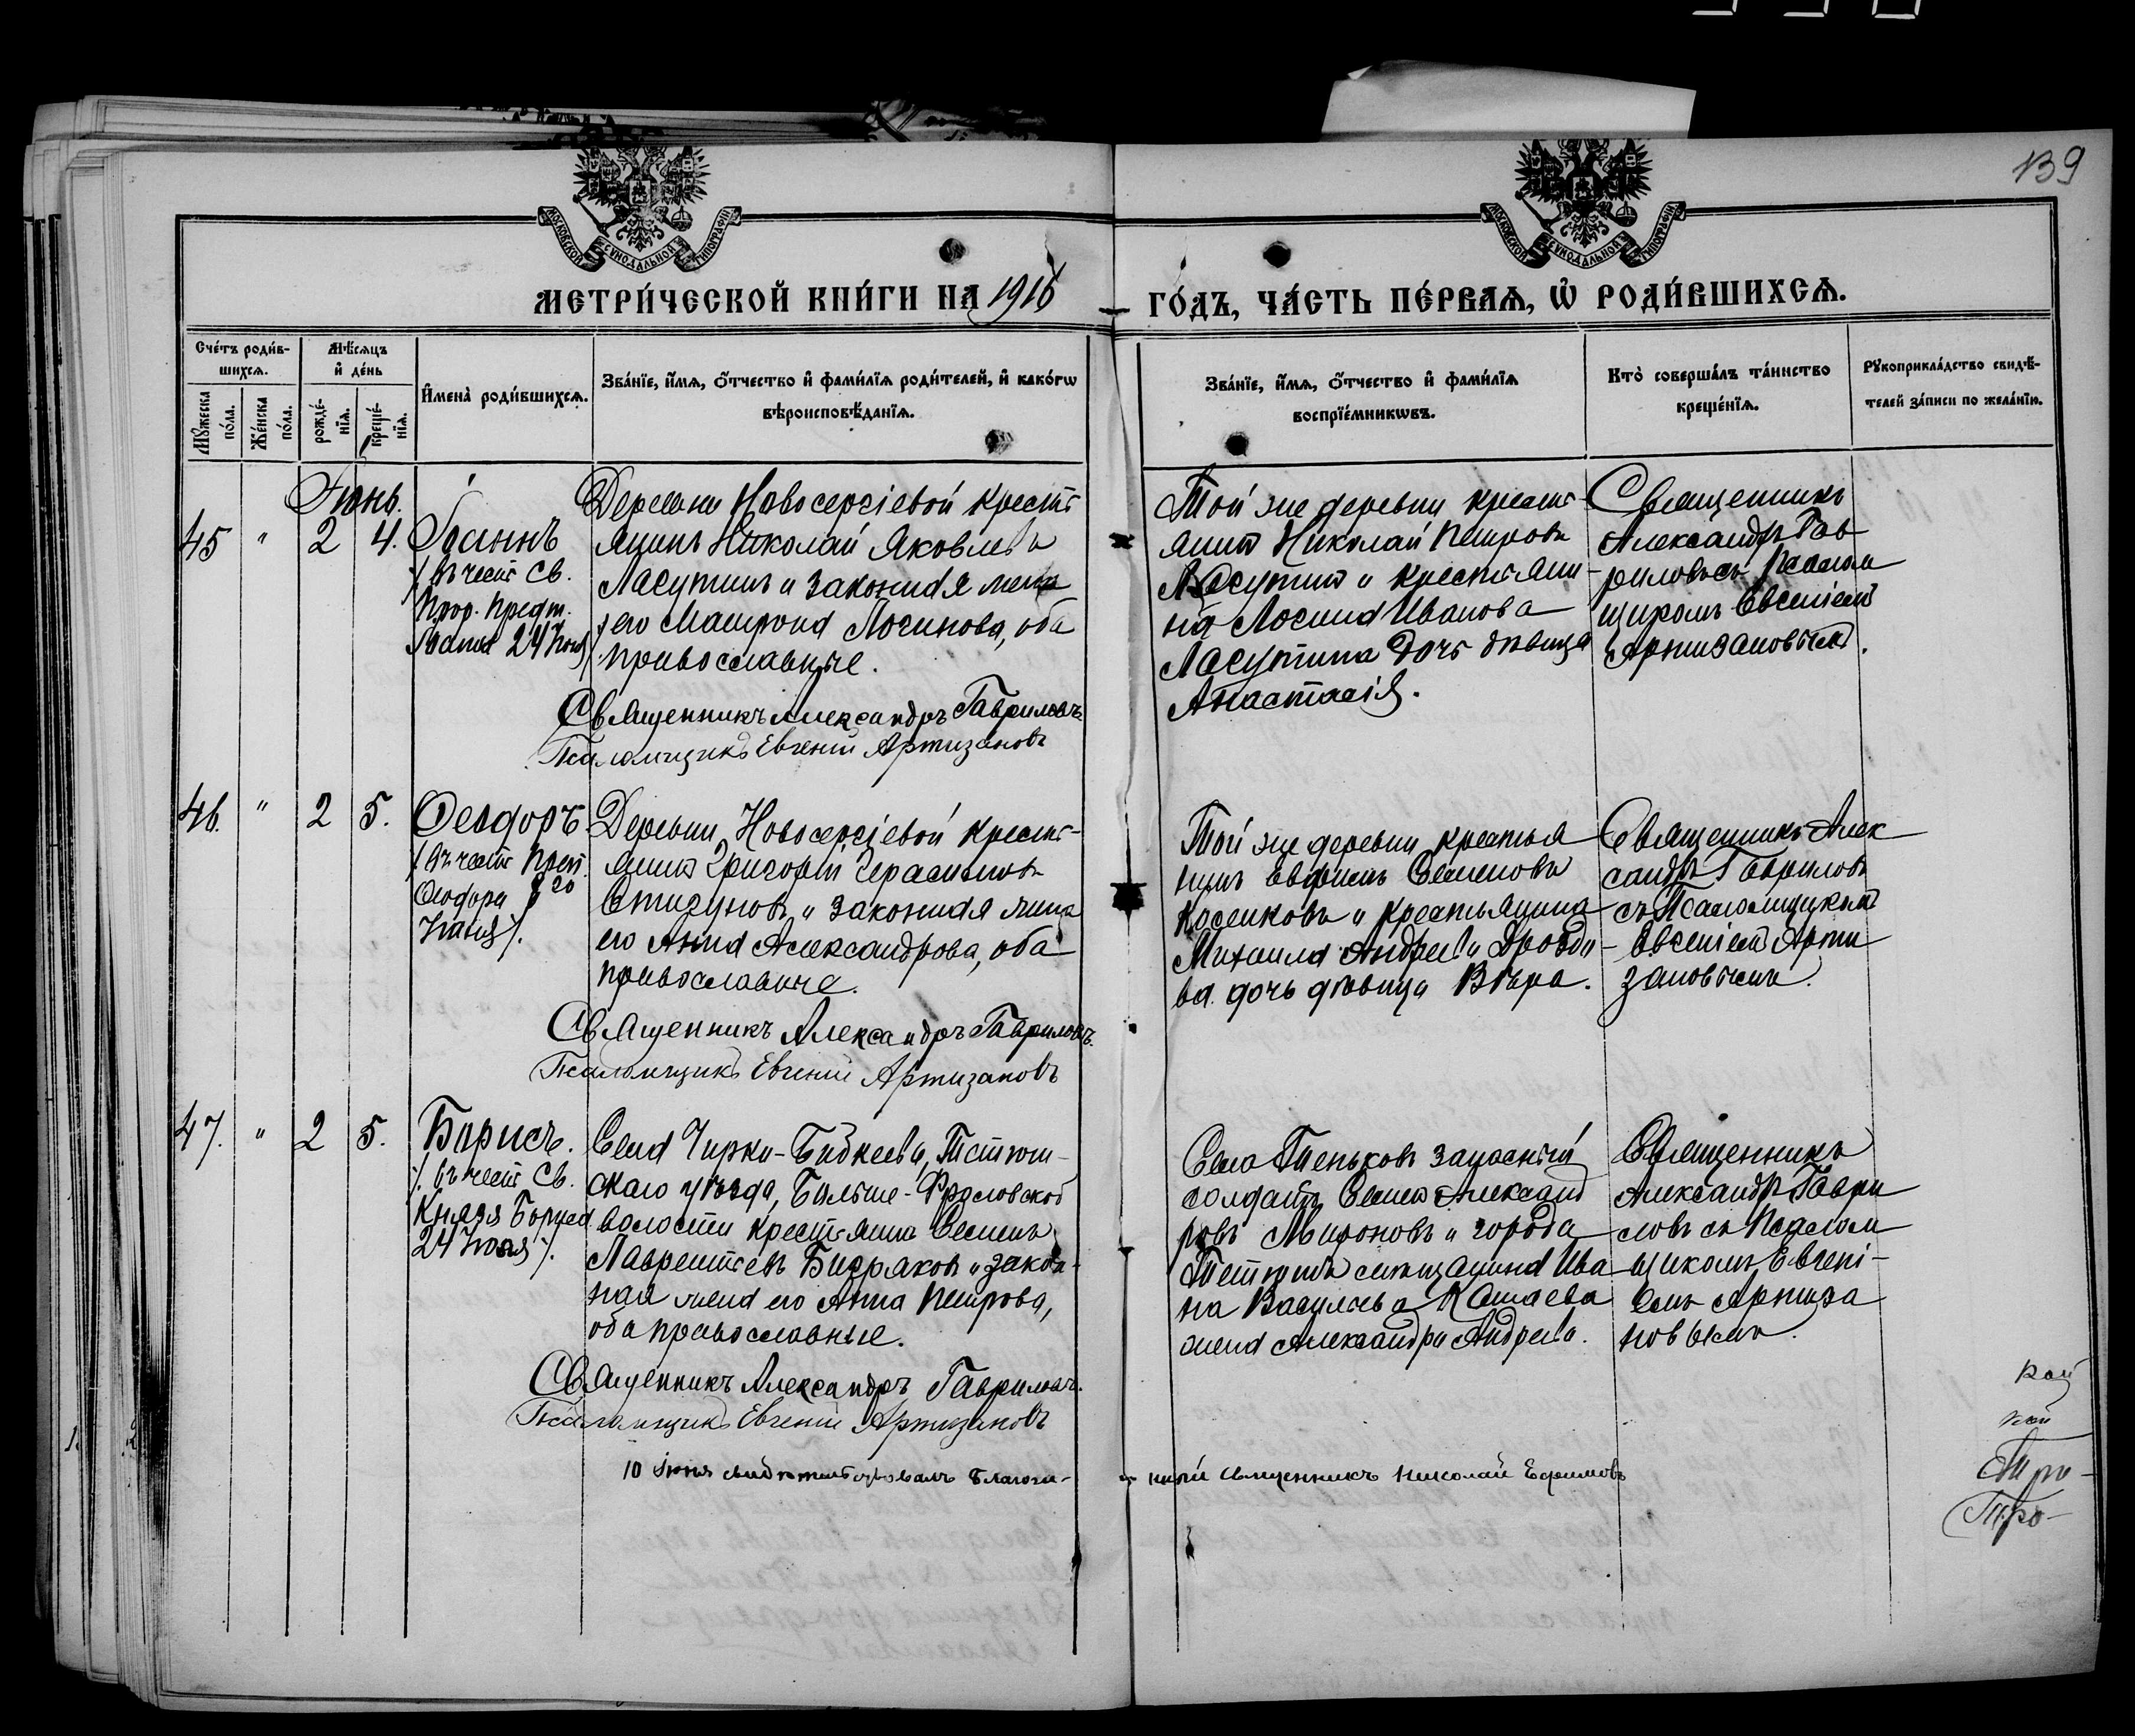 139
МОСКОВСКОЙ СѴНОДАЛЬНОЙ ТИПОГРАФІИ
МОСКОВСКОЙ СѴНОДАЛЬНОЙ ТИПОГРАФІИ
МЕТРИ́ЧЕСКОЙ КНИ́ГИ НА 1916
ГО́ДЪ, ЧА́СТЬ ПЕ́РВАЯ, Ѡ҆ РОДИ́ВШИХСЯ.
Сче́тъ роди́в-
шихся.
Мѣ́сяцъ
и҆ де́нь
Мꙋ́жеска
по́ла.
Же́нска
по́ла.
рожде́-
нїя.
креще́-
нїя.
И҆мена̀ роди́вшихся.
Зва́нїе, и҆́мя, ѻ҆́тчество и҆ фами́лїя роди́телей, и҆ како́гѡ
вѣроисповѣ́данїя.
Зва́нїе, и҆́мя, ѻ҆́тчество и҆ фами́лїя
воспрїе́мникѡвъ.
Кто̀ соверша́лъ та́инство
креще́нїя.
Рꙋкоприкла́дство свидѣ́-
телей за́писи по жела́нїю.
Іюнь.
45 " 2 4.
Іоаннъ
/. въ честь Св.
Прор. Предт.
Іоанна 24 Іюня /
Деревни Новосергіевой кресть
янинъ Николай Яковлевъ
Ласутинъ и законная жена
его Матрона Логинова, оба
православные.
Священникъ Александръ Гавриловъ
Псаломщикъ Евгеній Артизановъ
Той же деревни кресть-
янинъ Николай Петровъ
Ласутинъ и крестьяни-
на Иванова
Ласутина дочь дѣвица
Анастасія.
Священникъ
Александръ Гав
риловъ съ Псалом
щикомъ Евгеніемъ
Артизановымъ.
46. " 2 5.
Ѳеодоръ
/. въ честь Преп.
Ѳеодора 20
Деревни Новосергіевой кресть-
янинъ Григорій Герасимовъ
Стигуновъ и законная жена
его Анна Александрова, оба
православные.
Священникъ Александръ Гавриловъ.
Псаломщикъ Евгеній Артизановъ
Той же деревни крестья
нинъ Евфимъ Семеновъ
Косенковъ и крестьянина
Михаила Андреева Дрозди-
ва дочь дѣвица Вѣра.
Священникъ Алек
сандръ Гавриловъ
съ Псаломщикомъ
Евгеніемъ Арти
зановымъ.
47. " 2 5.
Борисъ.
/. въ честь Св.
Князя Бориса
24 Іюля /.
Села Чирки-Бибкеева, Тетюш-
скаго уѣзда, Больше-Фроловской
волости крестьянинъ Семенъ
Лаврентьевъ Бидряковъ и закон-
ная жена его Анна Петрова,
оба православные.
Священникъ Александръ Гавриловъ.
Псаломщикъ Евгеній Артизановъ
Села Теньковъ запасный
солдатъ Александ
ровъ Мироновъ и города
Тетюшъ мѣщанина Ива
на Васильева Кашаева
жена Александра Андреева.
Священникъ
Александръ Гаври
ловъ съ Псалом
щикомъ Евгені-
емъ Артиза
новымъ.
10 Іюня свидѣтельствовалъ Благочи-
нный священникъ Николай Ефимовъ
кой
Тро-